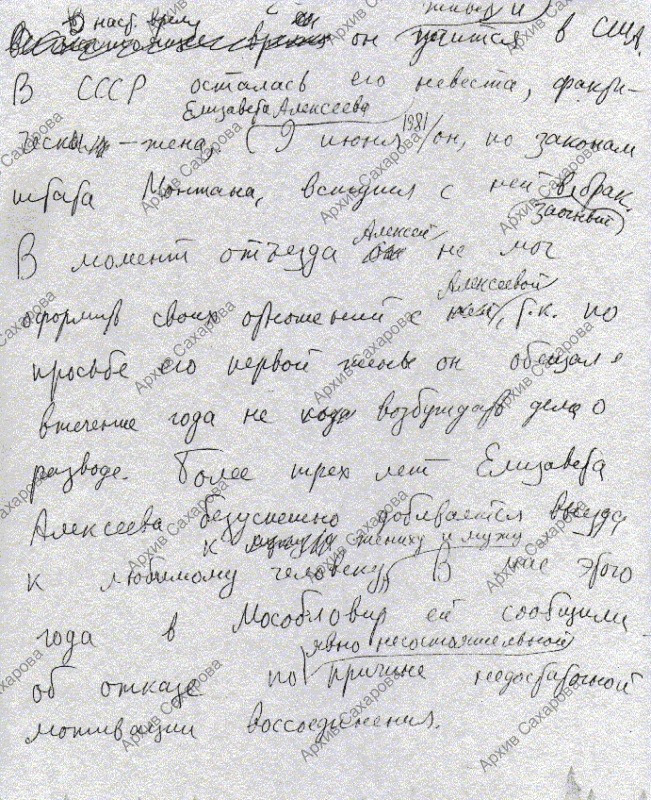 В наст. время
он учится в США.
В СССР осталась его невеста, факти-
Елизавета Алексеева
чески – жена, (9 июня 1981 он, по законам
штата Монтана, вступил с ней в брак.
заочный
В момент отъезда Алексей не мог
Алексеевой
оформить своих отношений с ней, т.к. по
просьбе его первой жены он обещал
в течение года не возбуждать дела о
разводе. Более трех лет Елизавета
Алексеева безуспешно добивается выезда
к жениху и мужу
к любимому человеку. В мае этого
года в Мособловир ей сообщили
явно несостоятельной
об отказе по причине недостаточной
мотивации воссоединения.
Архив Сахарова